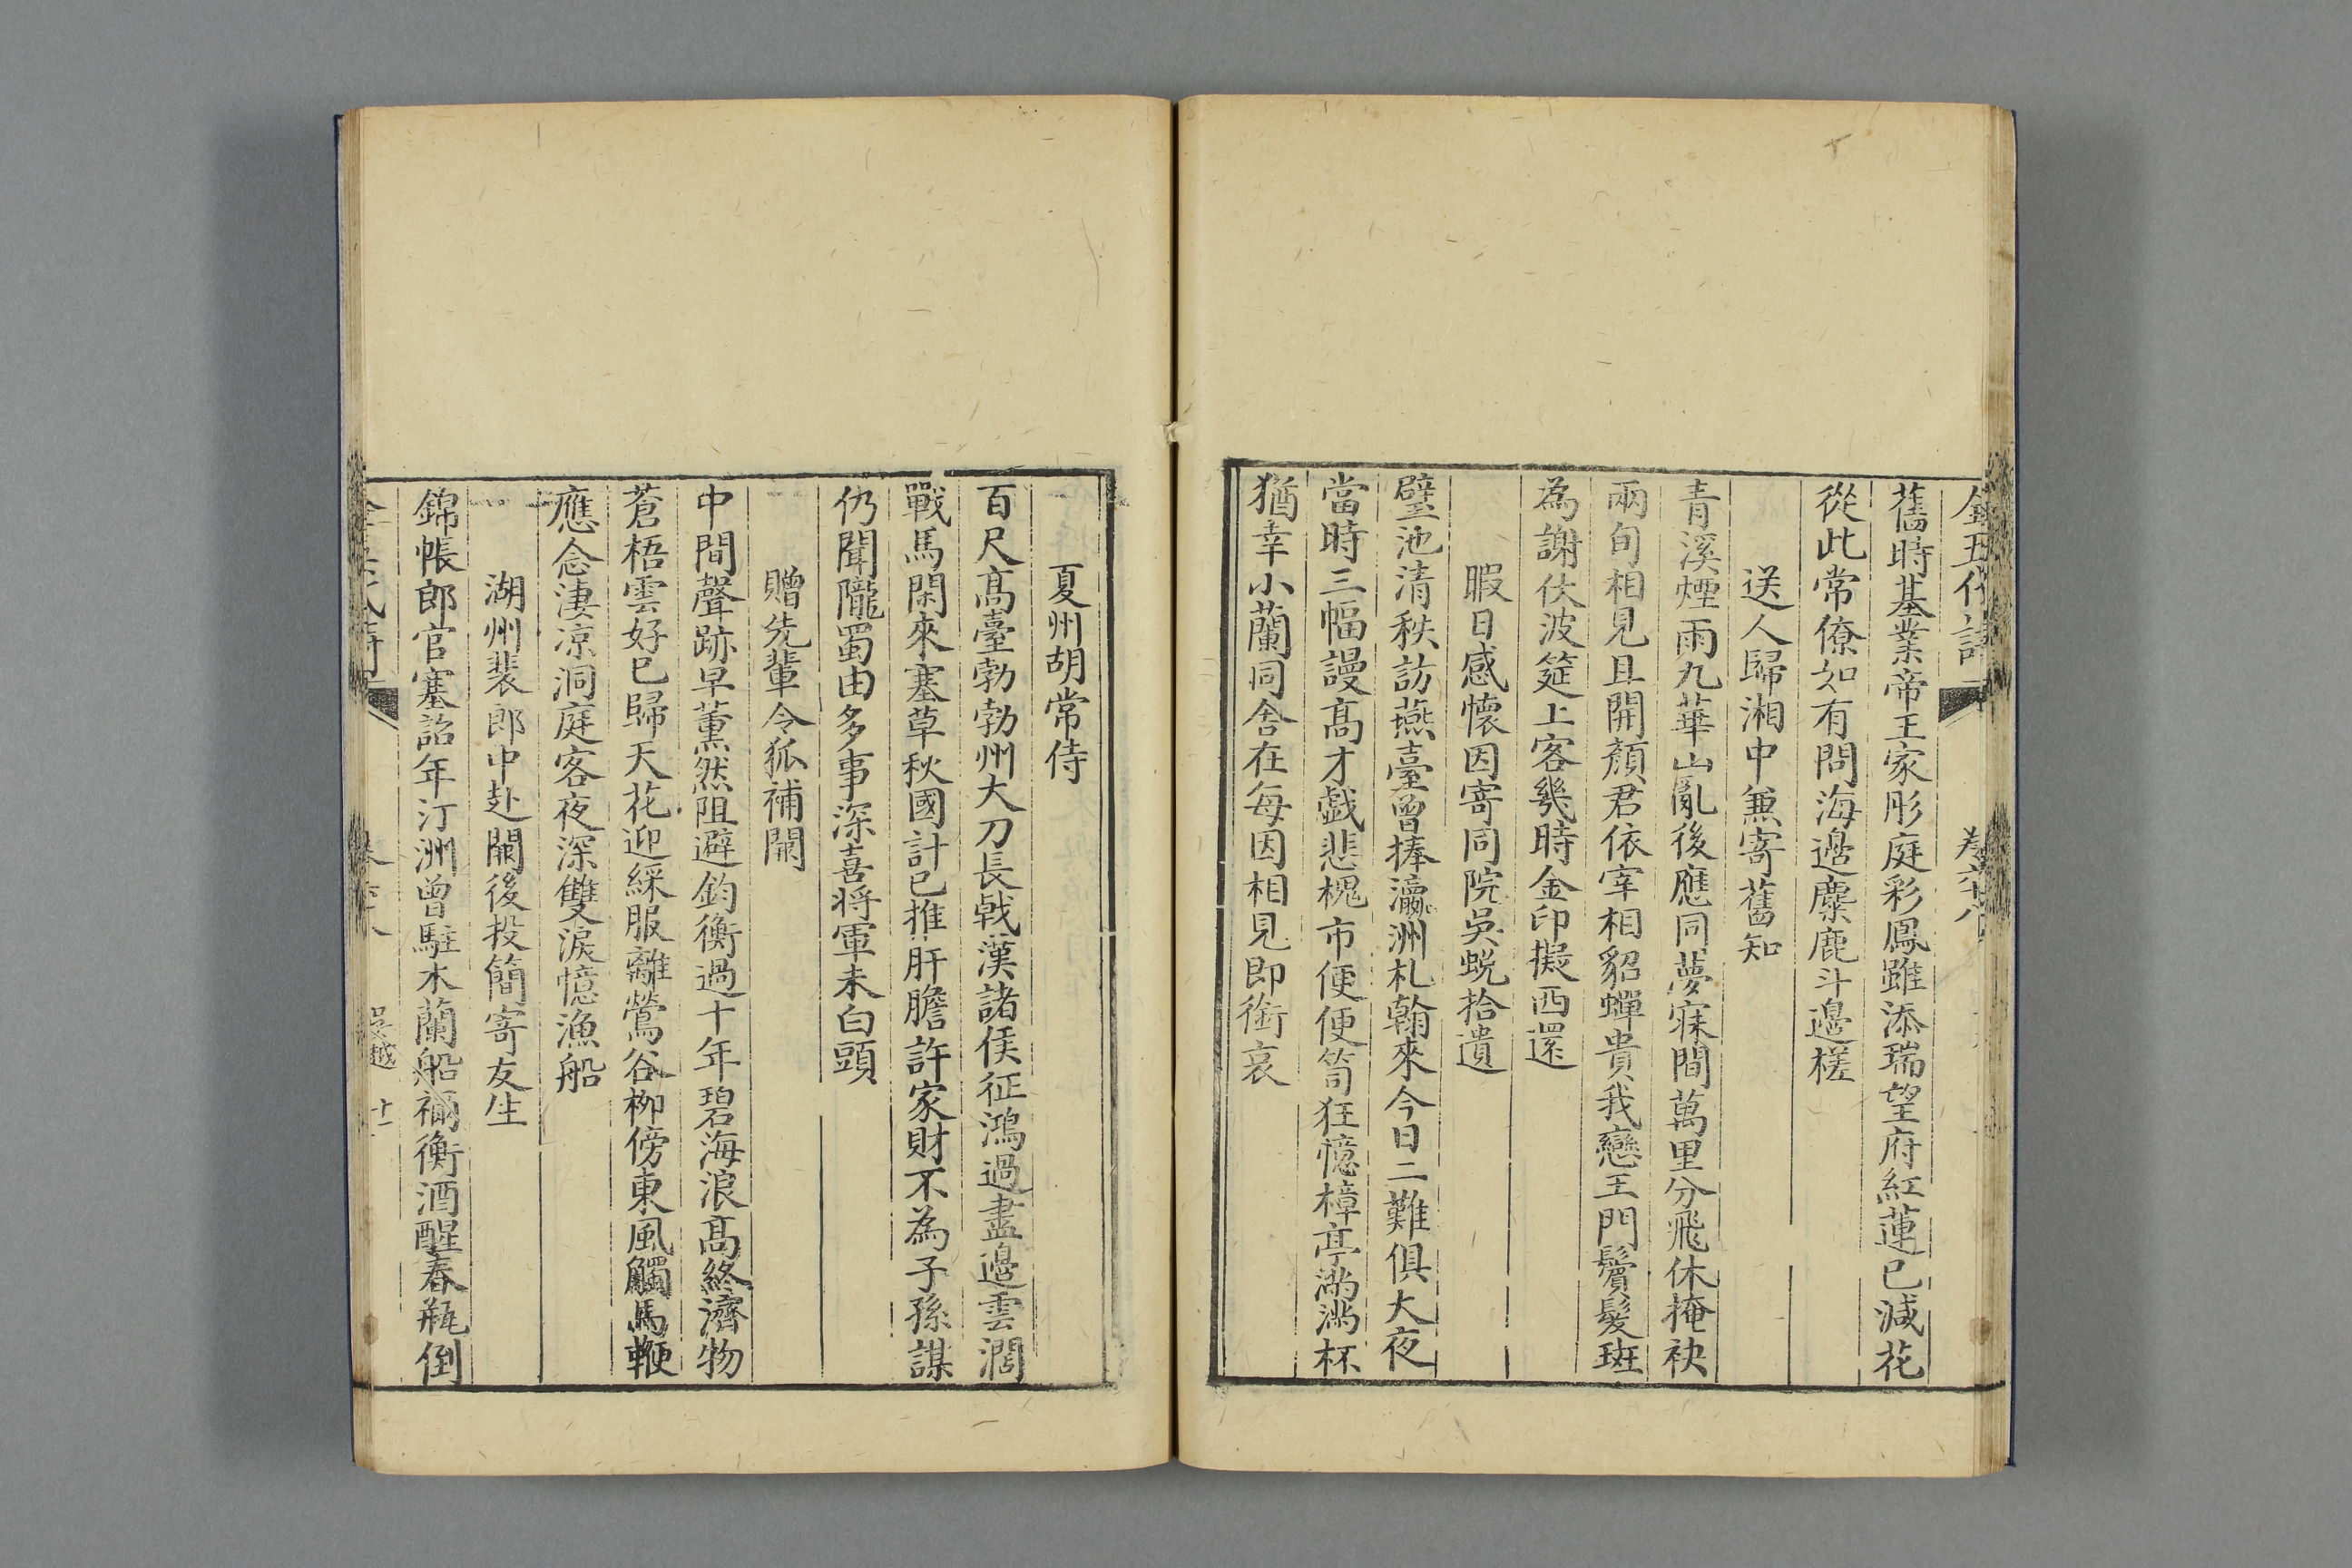 全五代詩 卷六十八
舊時基業帝王家彤庭彩鳳雖添瑞望府紅蓮已減花
從此常僚如有問海邉麋鹿斗邉槎
送人歸湘中兼寄舊知
青溪煙雨九華山亂後應同夢寐間萬里分飛休掩袂
兩旬相見且開顏君依宰相貂蟬貴我戀王門鬢髮斑
為謝伏波筵上客幾時金印擬西還
暇日感懷因寄同院吳蛻拾遺
璧池清秩訪燕臺曾捧瀛洲札翰來今日二難俱大夜
當時三幅謾髙才戯悲槐市便便笥狂憶樟亭滿滿杯
猶幸小蘭同舍在每因相見即銜哀
夏州胡常侍
百尺髙臺勃勃州大刀長戟漢諸侯征鴻過盡邉雲濶
戰馬閑來塞草秋國計已推肝膽許家財不為子孫謀
仍聞隴蜀由多事深喜将軍未白頭
贈先輩令狐補闕
中間聲跡早薫然阻避鈞衡過十年碧海浪髙終濟物
蒼梧雲好已歸天花迎綵服離鶯谷柳傍東風觸馬鞭
應念淒凉洞庭客夜深雙淚憶漁船
湖州裴郎中赴闕後投簡寄友生
錦帳郎官塞詔年汀洲曾駐木蘭船禰衡酒醒春瓶倒
吳越 十一